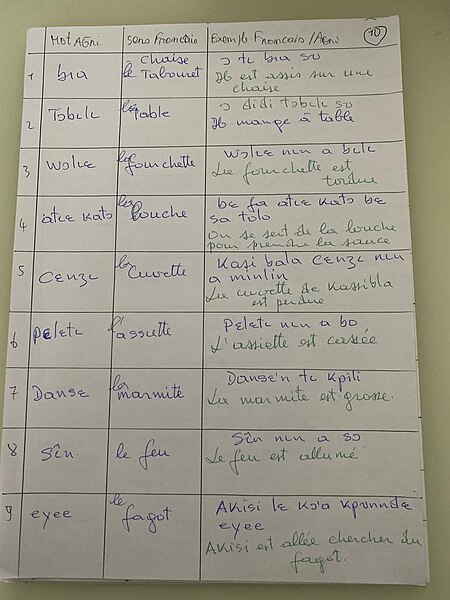 Mot Agni sens Francais Exemple Francais/Agni 10
1 bia chaise le Tabouret ɔ tɩ bia sʊ
Il est assis sur une
chaise
2 Tɔbɩlɩ la table ɔ didi tɔbɩlɩ sʊ
Il mange à table
3 Wɔlɩɛ la fourchette Wɔlɩɛ nɩn a bɩlɩ
La fourchette est
tordue
4 atɩɛ Katɔ la louche bɛ fa atɩɛ Katɔ bɛ
sa tolo
On se sert de la louche
pour prendre la sauce
5 Cɛnzɩ la Cuvette Kasi bala Cɛnzɩ nɩn
a minlin
La cuvette de Kassibla
est perdue
6 Peletɩ l'assiette Peletɩ nɩn a bo
L'assiette est cassée
7 Danse la marmite Danse'n tɩ kpili
La marmite est grosse.
8 Sîn le feu Sîn nɩn a sɔ
Le feu est allumé
9 eyee le fagot Akisi
eyee
Akisi est allée chercher du
fagot.